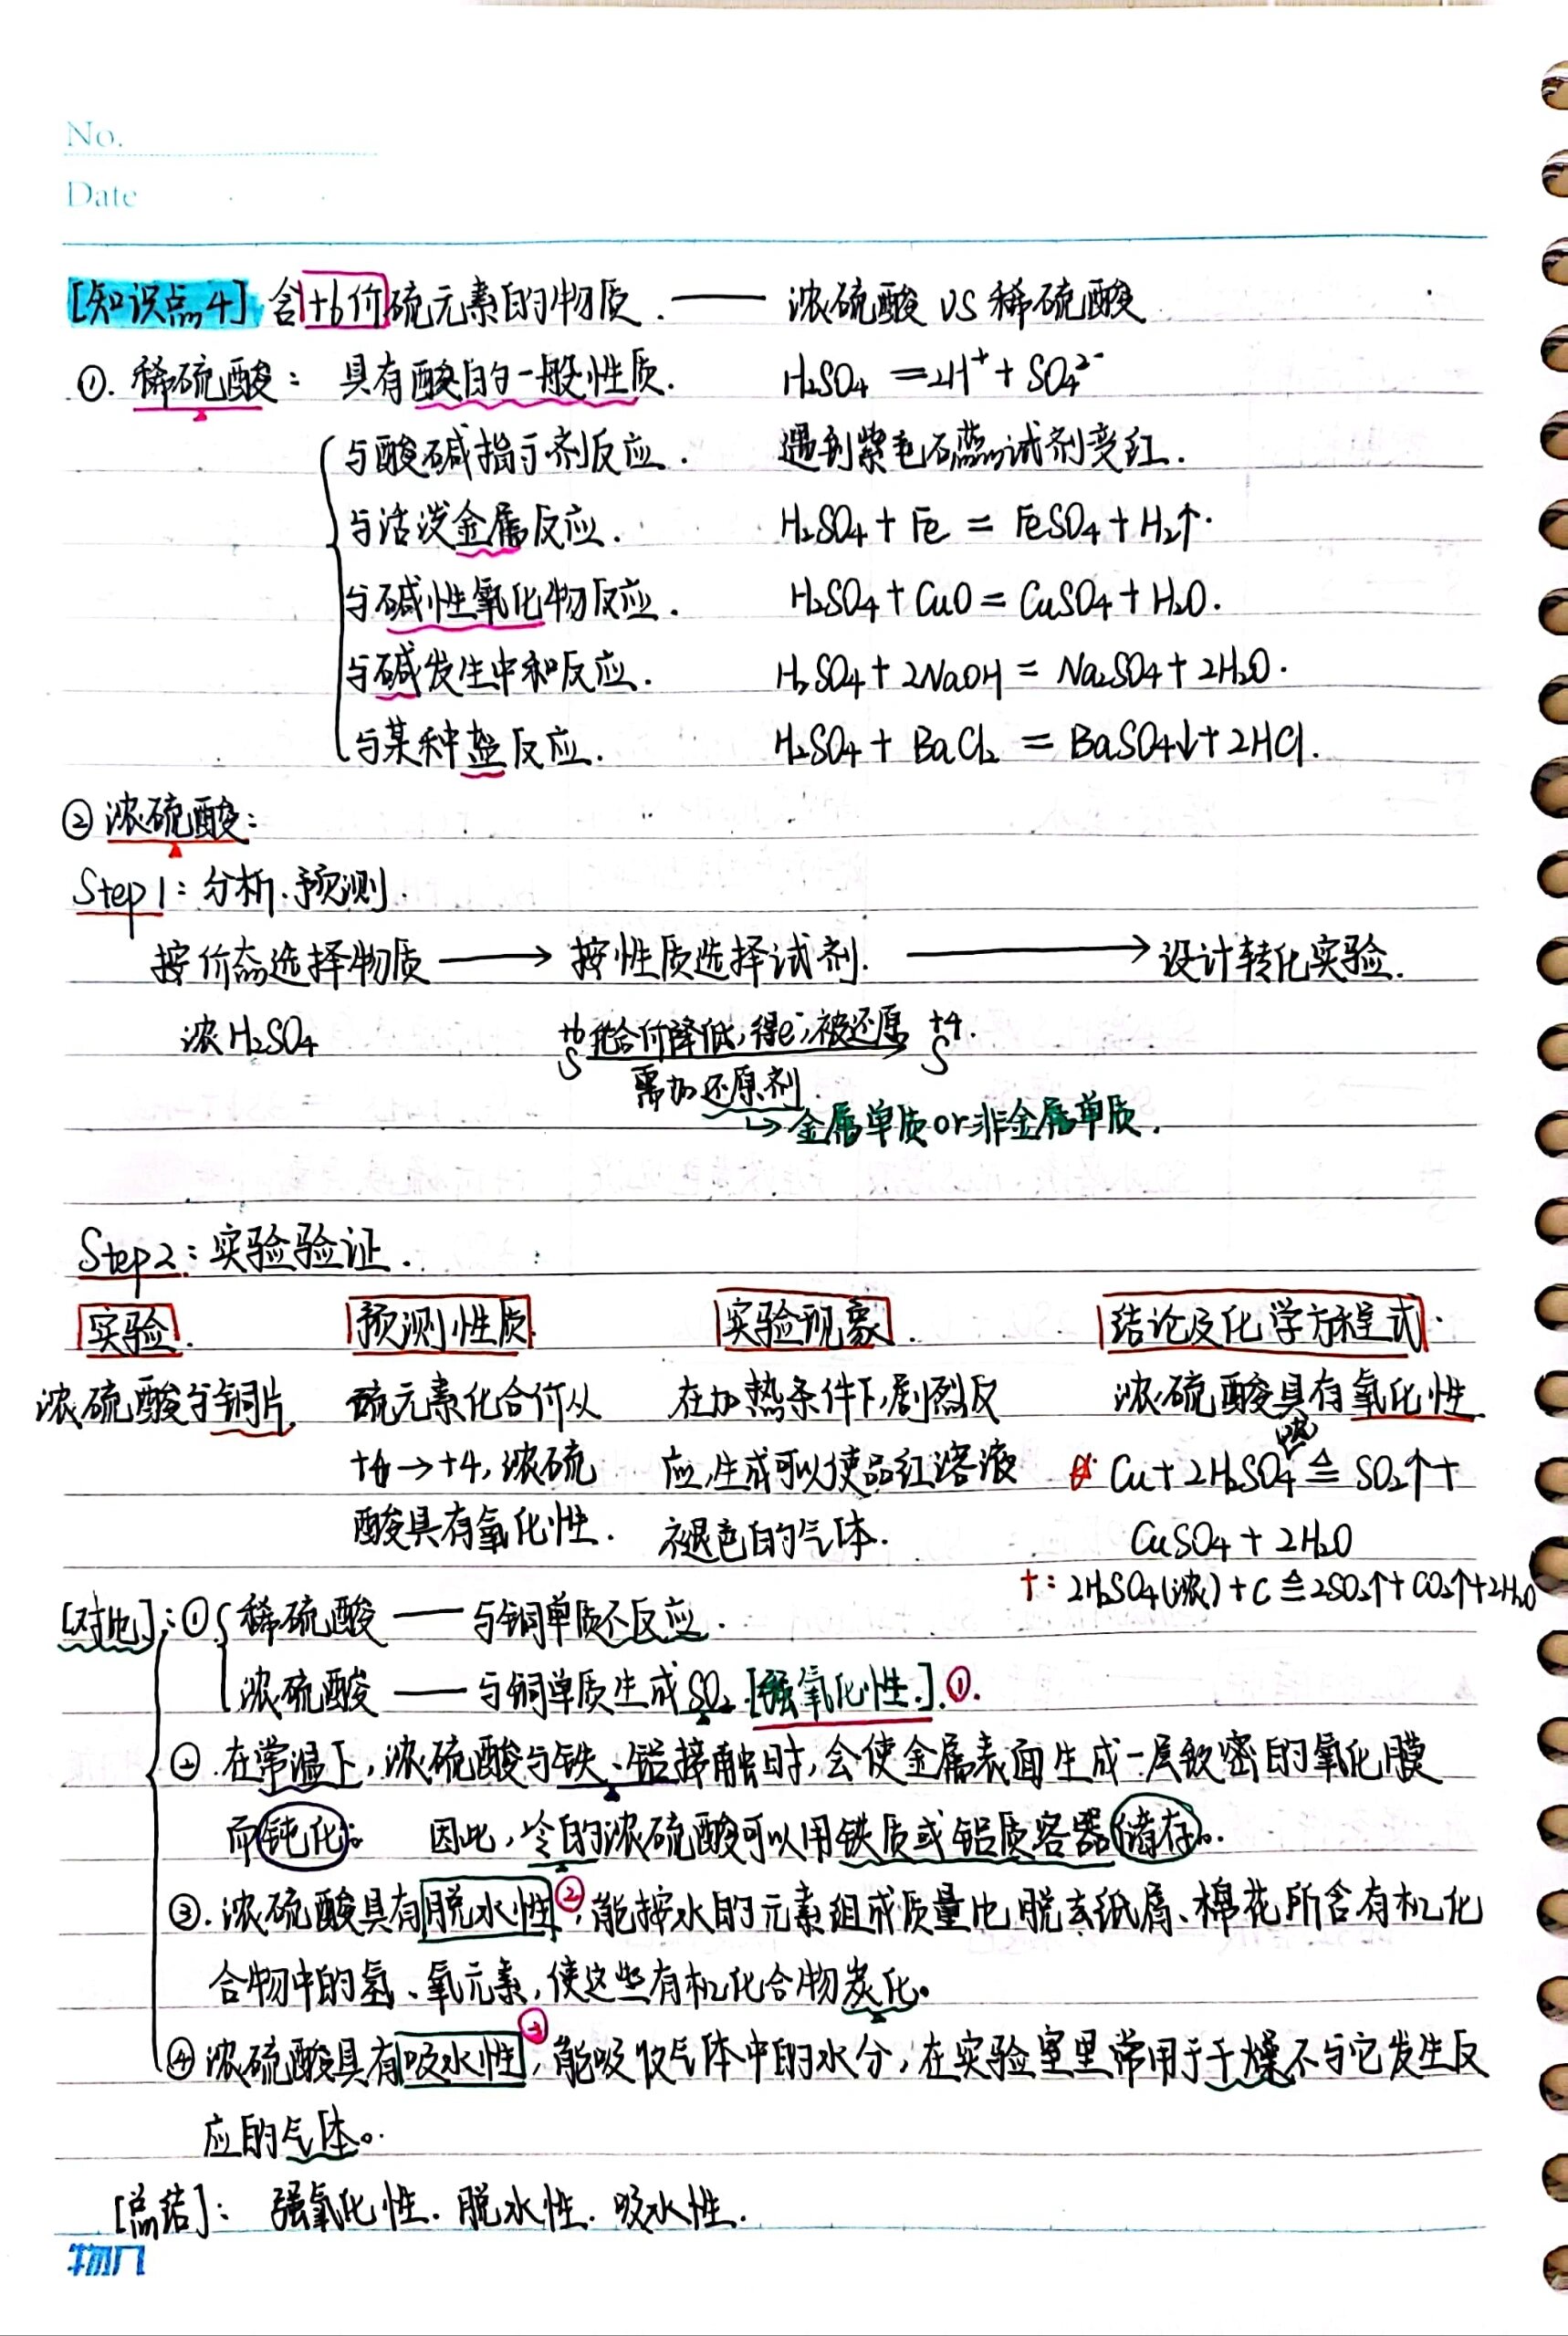 No.
Date
[知识点4] 含+6价硫元素的物质. —— 浓硫酸 VS 稀硫酸
①. 稀硫酸: 具有酸的一般性质. H₂SO₄ = 2H⁺ + SO₄²⁻
与酸碱指示剂反应. 遇到紫色石蕊试剂变红.
与活泼金属反应. H₂SO₄ + Fe = FeSO₄ + H₂↑.
与碱性氧化物反应. H₂SO₄ + CuO = CuSO₄ + H₂O.
与碱发生中和反应. H₂SO₄ + 2NaOH = Na₂SO₄ + 2H₂O.
与某种盐反应. H₂SO₄ + BaCl₂ = BaSO₄↓ + 2HCl.
② 浓硫酸:
Step1: 分析.预测.
按价态选择物质 ——→ 按性质选择试剂. ——→ 设计转化实验.
浓H₂SO₄ +6 S 化合价降低,得e⁻,被还原 +4 S.
需加还原剂.
↳ 金属单质or非金属单质.
Step2: 实验验证.
实验. 预测性质. 实验现象. 结论及化学方程式.
浓硫酸与铜片. 硫元素化合价从 在加热条件下,剧烈反 浓硫酸具有氧化性.
+6→+4, 浓硫 应,生成可以使品红溶液 Cu + 2H₂SO₄ 浓 ≜ SO₂↑ +
酸具有氧化性. 褪色的气体. CuSO₄ + 2H₂O
+: 2H₂SO₄(浓) + C ≜ 2SO₂↑ + CO₂↑ + 2H₂O
[对比]: ① 稀硫酸 —— 与铜单质不反应.
浓硫酸 —— 与铜单质生成SO₂. [强氧化性.]. ①.
② 在常温下,浓硫酸与铁、铝接触时,会使金属表面生成一层致密的氧化膜
而钝化。 因此,冷的浓硫酸可以用铁质或铝质容器储存。
③. 浓硫酸具有脱水性②,能按水的元素组成质量比脱去纸屑、棉花所含有机化
合物中的氢、氧元素,使这些有机化合物炭化。
④ 浓硫酸具有吸水性③,能吸收气体中的水分,在实验室里常用于干燥不与它发生反
应的气体。
[总结]: 强氧化性. 脱水性. 吸水性.